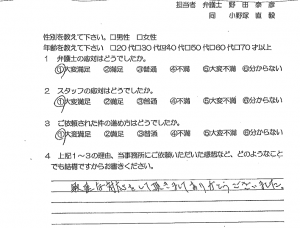 担当者 弁護士 野田泰彦
同 小野塚直毅
性別を教えて下さい。□男性 □女性
年齢を教えて下さい □20代□30代□40代□50代□60代□70才以上
1 弁護士の応対はどうでしたか。
①大変満足 ②満足 ③普通 ④不満 ⑤大変不満 ⑥分からない
2 スタッフの応対はどうでしたか。
①大変満足 ②満足 ③普通 ④不満 ⑤大変不満 ⑥分からない
3 ご依頼された件の進め方はどうでしたか。
①大変満足 ②満足 ③普通 ④不満 ⑤大変不満 ⑥分からない
4 上記1~3の理由、当事務所にご依頼いただいた感想など、どのようなこと
でも結構ですからお書きください。
敏速な対応をして頂きましてありがとうございました。